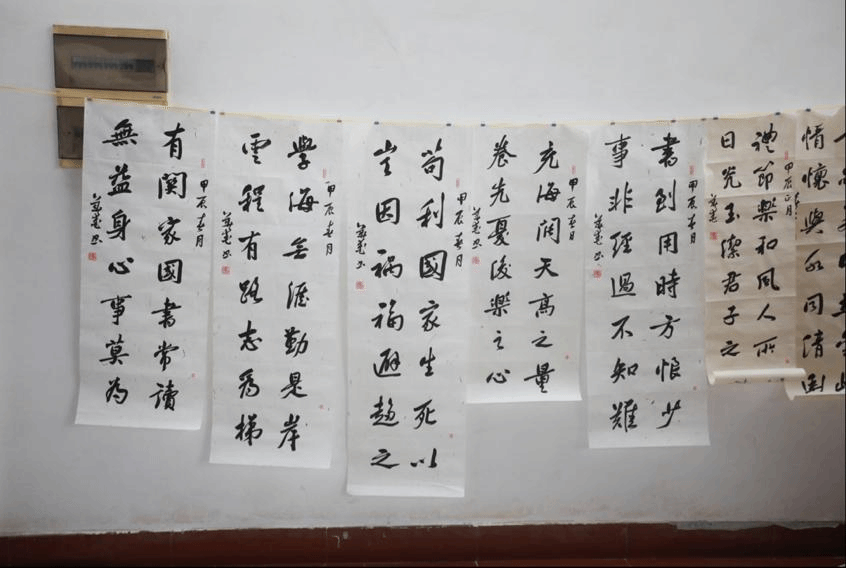 甲辰春月
有関家國書常讀
無益身心事莫為
甲辰春月
學海無涯勤是岸
雲程有路志為梯
甲辰春月
苟利國家生死以
豈因禍福避趨之
甲辰春月
充海闊天高之量
養先憂後樂之心
甲辰春月
書到用時方恨少
事非經過不知難
甲辰正月
禮節樂和風人所
日光玉潔君子之
情懷與水同清